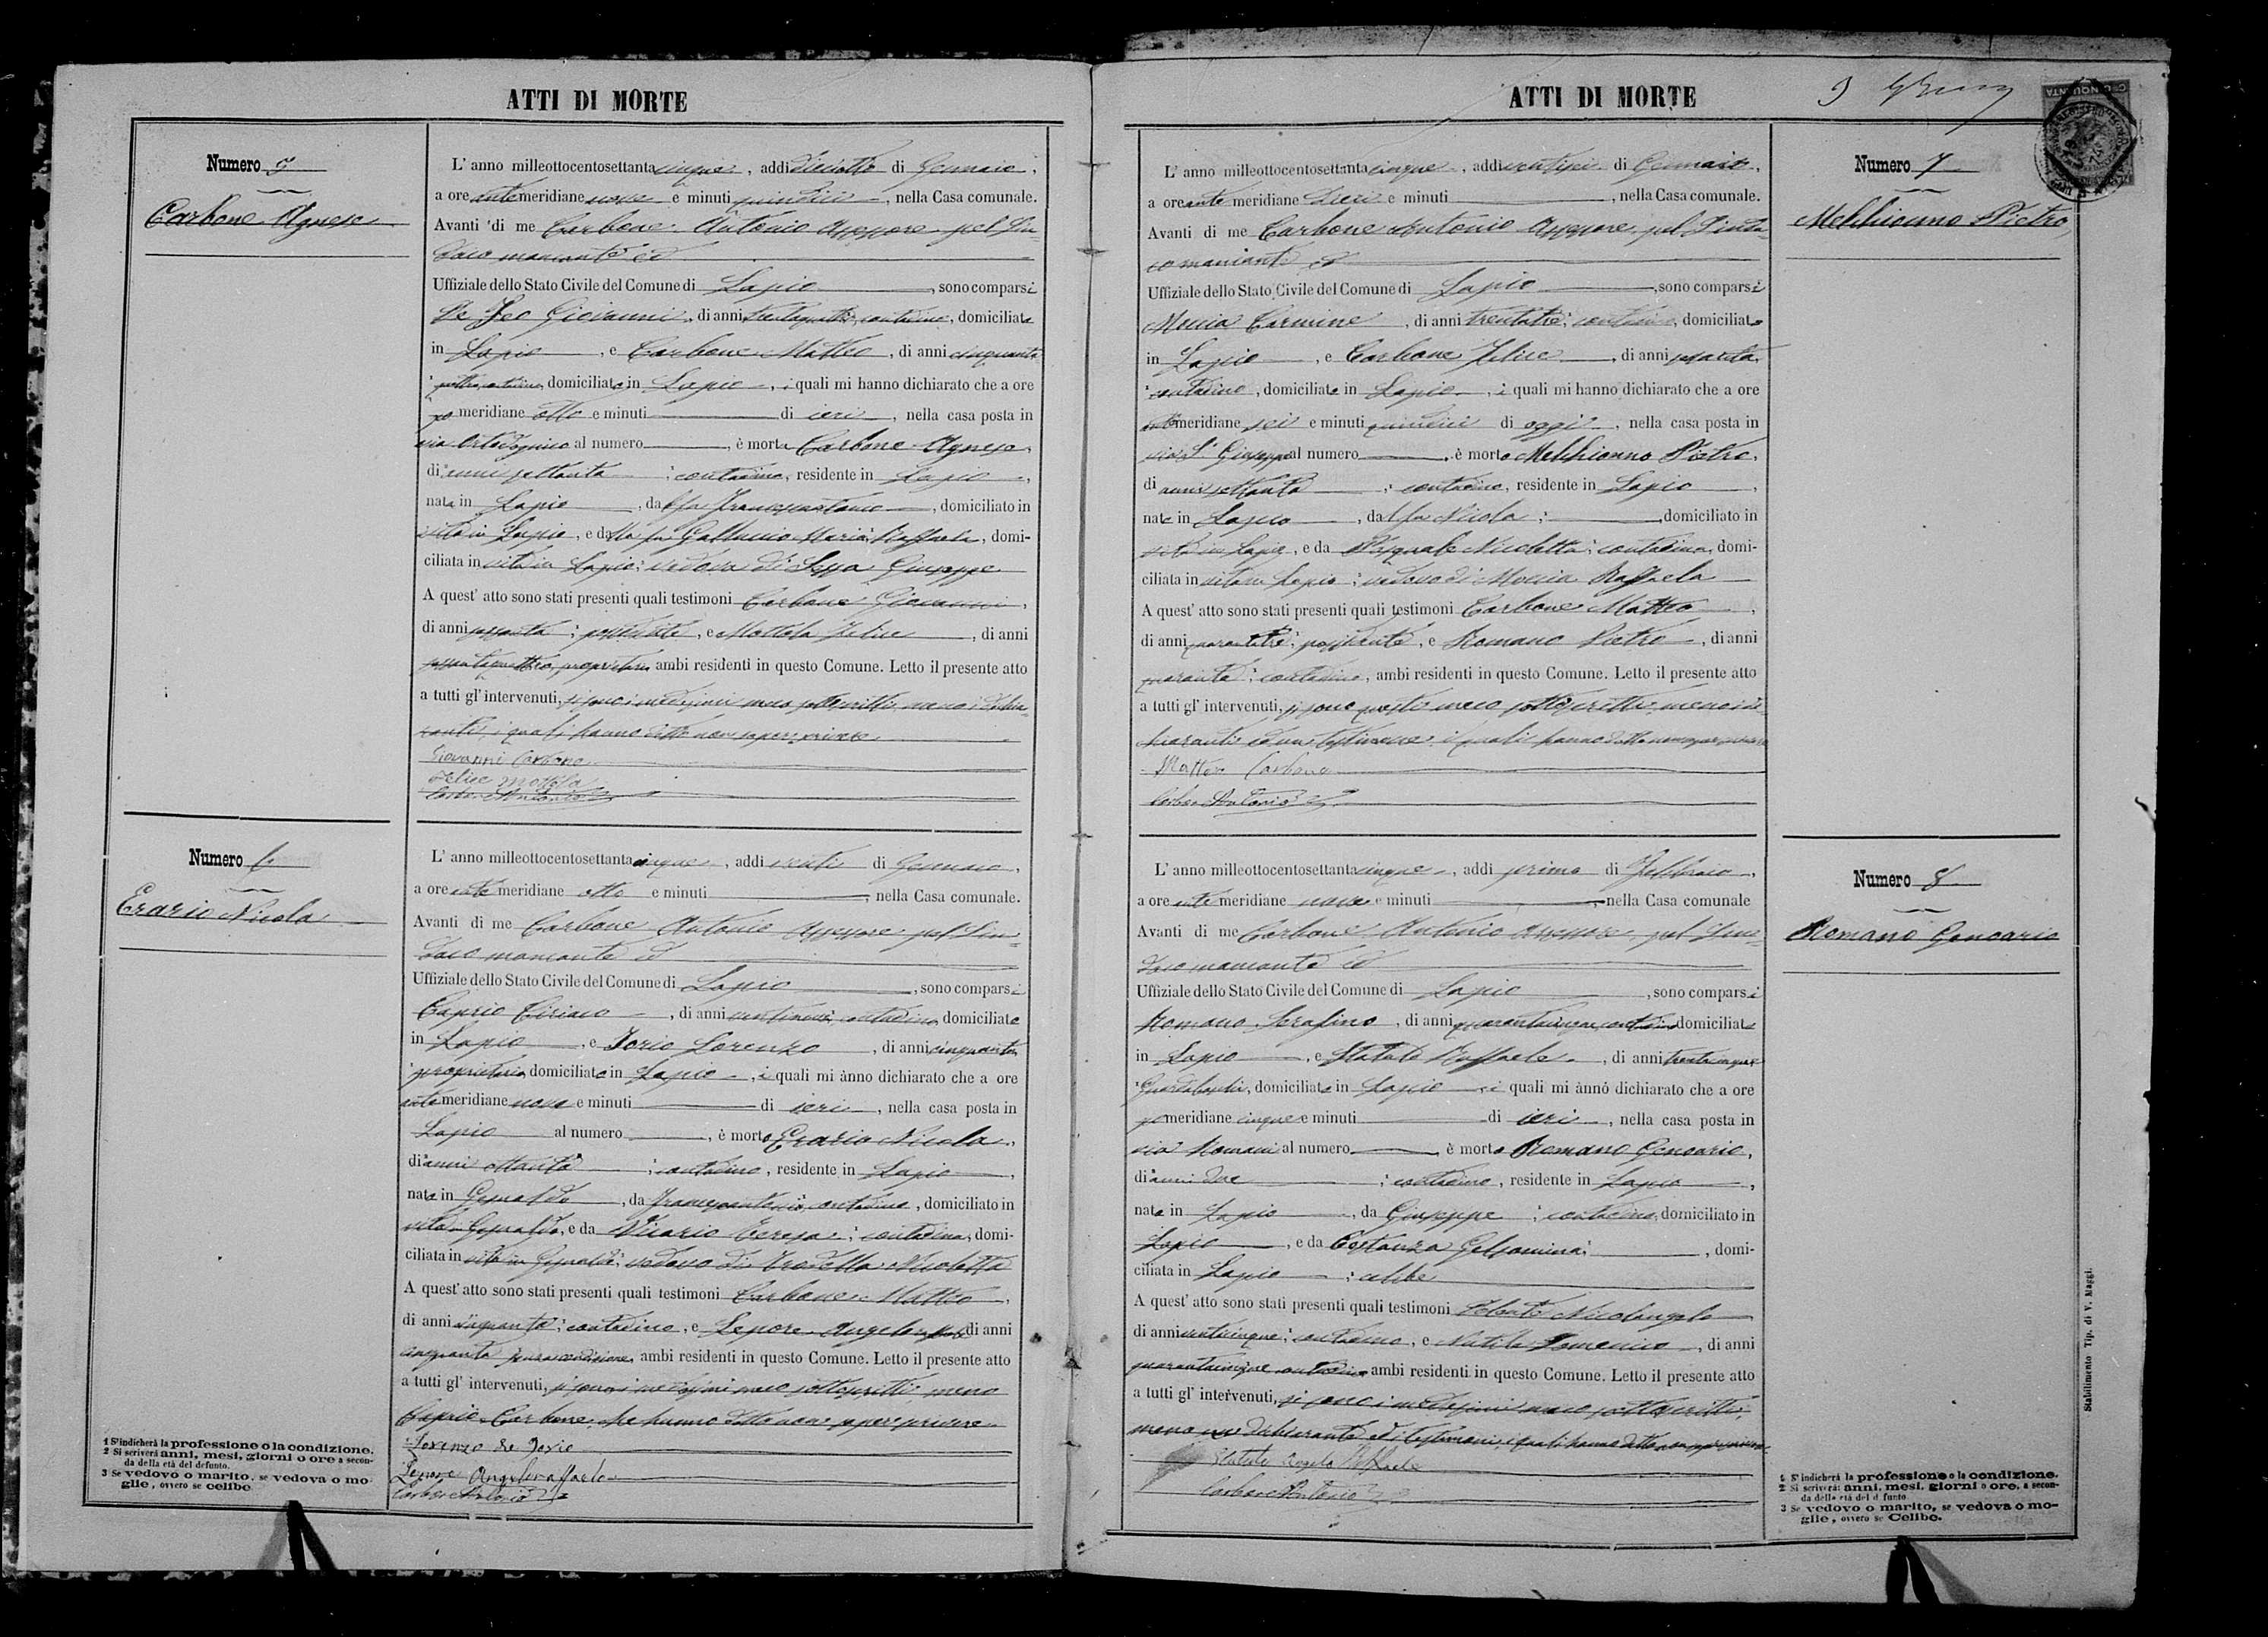 ATTI DI MORTE
Numero 5
Carbone Agnese
L' anno milleottocentosettantacinque, addi diciotto di Gennaio,
a ore ante meridiane nove e minuti quindici, nella Casa comunale.
Avanti di me Carbone Antonio Assessore pel Sin-
daco mancante ed
Uffiziale dello Stato Civile del Comune di Lapio, sono comparsi
De Feo Giovanni, di anni contadino, domiciliato
in Lapio, e Carbone Matteo, di anni cinquanta
domiciliato in Lapio, i quali mi hanno dichiarato che a ore
po meridiane otto e minuti di ieri, nella casa posta in
via al numero, è morta Carbone Agnese,
di anni settanta; contadina, residente in Lapio,
nata in Lapio, dal fu Francescantonio, domiciliato in
vita in Lapio, e dalla fu Galluccio Maria Raffaela, domi-
ciliata in vita in Lapio; vedova di Seppa Giuseppe
A quest' atto sono stati presenti quali testimoni Carbone Giovanni,
di anni sessanta; possidente, e Mottola Felice, di anni
sessantaquattro, proprietario ambi residenti in questo Comune. Letto il presente atto
a tutti gl' intervenuti, si sono i medesimi meco sottoscritti, meno i dichia-
ranti, i quali hanno detto non sapere scrivere
Giovanni Carbone
Felice Mottola
Carbone Antonio
Numero 6
Erario Nicola
L' anno milleottocentosettantacinque, addi venti di Gennaio,
a ore ante meridiane otto e minuti, nella Casa comunale.
Avanti di me Carbone Antonio Assessore pel Sin-
daco mancante ed
Uffiziale dello Stato Civile del Comune di Lapio, sono comparsi
Caprio Ciriaco, di anni ventinove; contadino, domiciliato
in Lapio, e Iorio Lorenzo, di anni cinquanta
; proprietario, domiciliato in Lapio, i quali mi ànno dichiarato che a ore
ante meridiane nove e minuti di ieri, nella casa posta in
Lapio al numero, è morto Erario Nicola,
di anni ottanta; contadino, residente in Lapio,
nato in Gesualdo, da Francescantonio, contadino, domiciliato in
vita in Gesualdo, e da Vicario Teresa; contadina, domi-
ciliata in vita in Gesualdo; vedovo di Nicoletta
A quest' atto sono stati presenti quali testimoni Carbone Matteo,
di anni cinquanta; contadino, e Lepore Angelo di anni
cinquanta ambi residenti in questo Comune. Letto il presente atto
a tutti gl' intervenuti, si sono i medesimi meco sottoscritti, meno
Caprio e Carbone che hanno detto non sapere scrivere
Lorenzo de Iorio
Lepore Angeloraffaele
Carbone Antonio
1 S'indicherà la professione o la condizione.
2 Si scriverà anni, mesi, giorni o ore a secon-
da della età del defunto.
3 Se vedovo o marito, se vedova o mo-
glie, ovvero se celibe
ATTI DI MORTE
Numero 7
Melchionno Pietro
L' anno milleottocentosettantacinque, addi ventisei di Gennaio,
a ore ante meridiane dieci e minuti, nella Casa comunale.
Avanti di me Carbone Antonio Assessore pel Sinda-
co mancante ed
Uffiziale dello Stato Civile del Comune di Lapio, sono comparsi
Moccia Carmine, di anni trentatre; contadino, domiciliato
in Lapio, e Carbone Felice, di anni sessanta
; contadino, domiciliato in Lapio, i quali mi hanno dichiarato che a ore
ante meridiane sei e minuti quindici di oggi, nella casa posta in
via S. Giuseppe al numero, è morto Melchionno Pietro,
di anni settanta; contadino, residente in Lapio,
nato in Lapio, dal fu Nicola; domiciliato in
vita in Lapio, e da Pasquale Nicoletta; contadina, domi-
ciliata in vita in Lapio; vedovo di Moccia Raffaela
A quest' atto sono stati presenti quali testimoni Carbone Matteo,
di anni quarantatre; possidente, e Romano Pietro, di anni
quaranta; contadino, ambi residenti in questo Comune. Letto il presente atto
a tutti gl' intervenuti, si sono questi meco sottoscritti, meno i di-
chiaranti ed un testimone i quali hanno detto non sapere scrivere
Matteo Carbone
Carbone Antonio
Numero 8
Romano Gennario
L' anno milleottocentosettantacinque, addi primo di Febbraio,
a ore ante meridiane nove e minuti, nella Casa comunale
Avanti di me Carbone Antonio Assessore pel Sin-
daco mancante ed
Uffiziale dello Stato Civile del Comune di Lapio, sono comparsi
Romano Serafino, di anni quarantacinque, contadino domiciliato
in Lapio, e Statuto Raffaele, di anni trentacinque
; Guardaboschi, domiciliato in Lapio, i quali mi ànnó dichiarato che a ore
po meridiane cinque e minuti di ieri, nella casa posta in
via Romani al numero, è morto Romano Gennario,
di anni due; contadino, residente in Lapio,
nato in Lapio, da Giuseppe; contadino, domiciliato in
Lapio, e da Costanza Gelsomina; domi-
ciliata in Lapio; celibe
A quest' atto sono stati presenti quali testimoni Nicolangelo
di anni venticinque; contadino, e Domenico, di anni
quarantacinque contadino ambi residenti in questo Comune. Letto il presente atto
a tutti gl' intervenuti, si sono i medesimi meco sottoscritti,
meno un dichiarante ed i testimoni, i quali hanno detto non sapere scrivere
Statuto Angelo Raffaele
Carbone Antonio
1 S'indicherà la professione o la condizione.
2 Si scriverà: anni, mesi, giorni o ore, a secon-
da della età del d funto
3 Se vedovo o marito, se vedova o mo-
glie, ovvero se Celibe.
Stabilimento Tip. di V. Maggi.